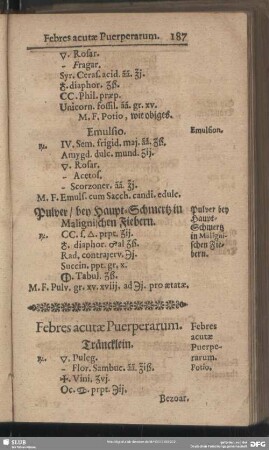 Febres acutæ Puerperarum. 187
🜄. Rosar.
- Fragar.
Syr. Ceras. acid. āā. ℥j.
☿. diaphor. ʒß.
CC. Phil. præp.
Unicorn. fossil. āā. gr. xv.
M. F. Potio, wie obiges.
Emulsio. Emulsion.
℞. IV. Sem. frigid. maj. āā. ʒiß.
Amygd. dulc. mund. ʒij.
🜄. Rosar.
- Acetos.
- Scorzoner. āā. ℥j.
M. F. Emuls. cum Sacch. candi. edulc.
Pulver / bey Haupt-Schmertz in
Malignischen Fiebern.
Pulver bey
Haupt-
Schmertz
in Maligni-
schen Fie-
bern.
℞. CC. s. 🜂. prpt. ʒij.
☿. diaphor. ♂al ʒß.
Rad. contrajerv. ℈j.
Succin. ppt. gr. x.
🜕. Tabul. ʒß.
M. F. Pulv. gr. xv. xviij. ad ℈j. pro ætate.
Febres acutæ Puerperarum.
Febres
acutæ
Puerpe-
rarum.
Potio.
Träncklein.
℞. 🜄. Puleg.
- Flor. Sambuc. āā. ℥iß.
🜊. Vini. ʒvj.
Oc. ♋. prpt. ℈ij.
Bezoar.
SLUB
DFG